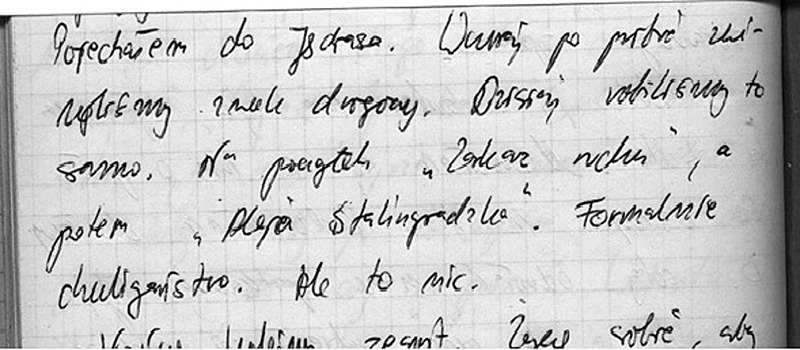 Pojechałem do Jędrasa. Wczoraj po próbie zwi-
nęliśmy znak drogowy. Dzisiaj robiliśmy to
samo. Na początek „Zakaz ruchu”, a
potem „Aleja Stalingradzka”. Formalnie
chuligaństwo. Ale to nic.
zegnat. sobie, aby